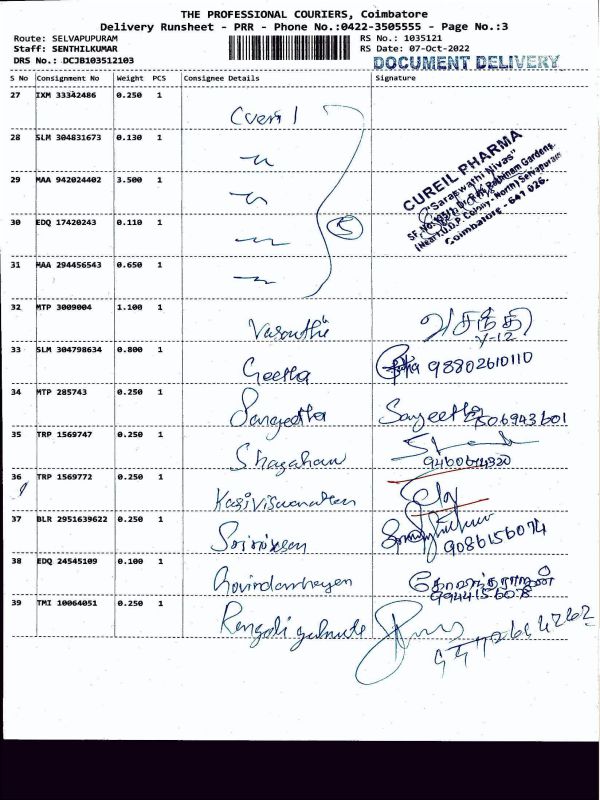 THE PROFESSIONAL COURIERS, Coimbatore
Delivery Runsheet - PRR - Phone No.:0422-3505555 - Page No.:3
Route: SELVAPUPURAM
RS No.: 1035121
Staff: SENTHILKUMAR
RS Date: 07-Oct-2022
DRS No.: DCJB103512103
DOCUMENT DELIVERY
S No Consignment No Weight PCS Consignee Details Signature
27 IXM 33342486 0.250 1
28 SLM 304831673 0.130 1
29 MAA 942024402 3.500 1
30 EDQ 17420243 0.110 1
5
31 MAA 294456543 0.650 1
CUREIL PHARMA
"Saraswathi Nivas"
Coimbatore - 641 026.
32 MTP 3009004 1.100 1
Vasanthi வசந்தி
Y-12
33 SLM 304798634 0.800 1
Geetha 98802610110
34 MTP 285743 0.250 1
Sangeetha Sangeetha
35 TRP 1569747 0.250 1
36 TRP 1569772 0.250 1
Kasiviswanathan
37 BLR 2951639622 0.250 1
9086156074
38 EDQ 24545109 0.100 1
9944156078
39 TMI 10064051 0.250 1